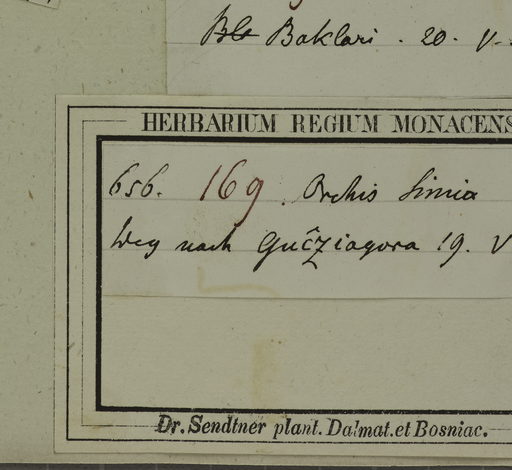 Baklari . 20. V.
HERBARIUM REGIUM MONACENS
656. 169. Orchis Simia
Weg nach Gučziagora 19. V
Dr. Sendtner plant. Dalmat. et Bosniac.